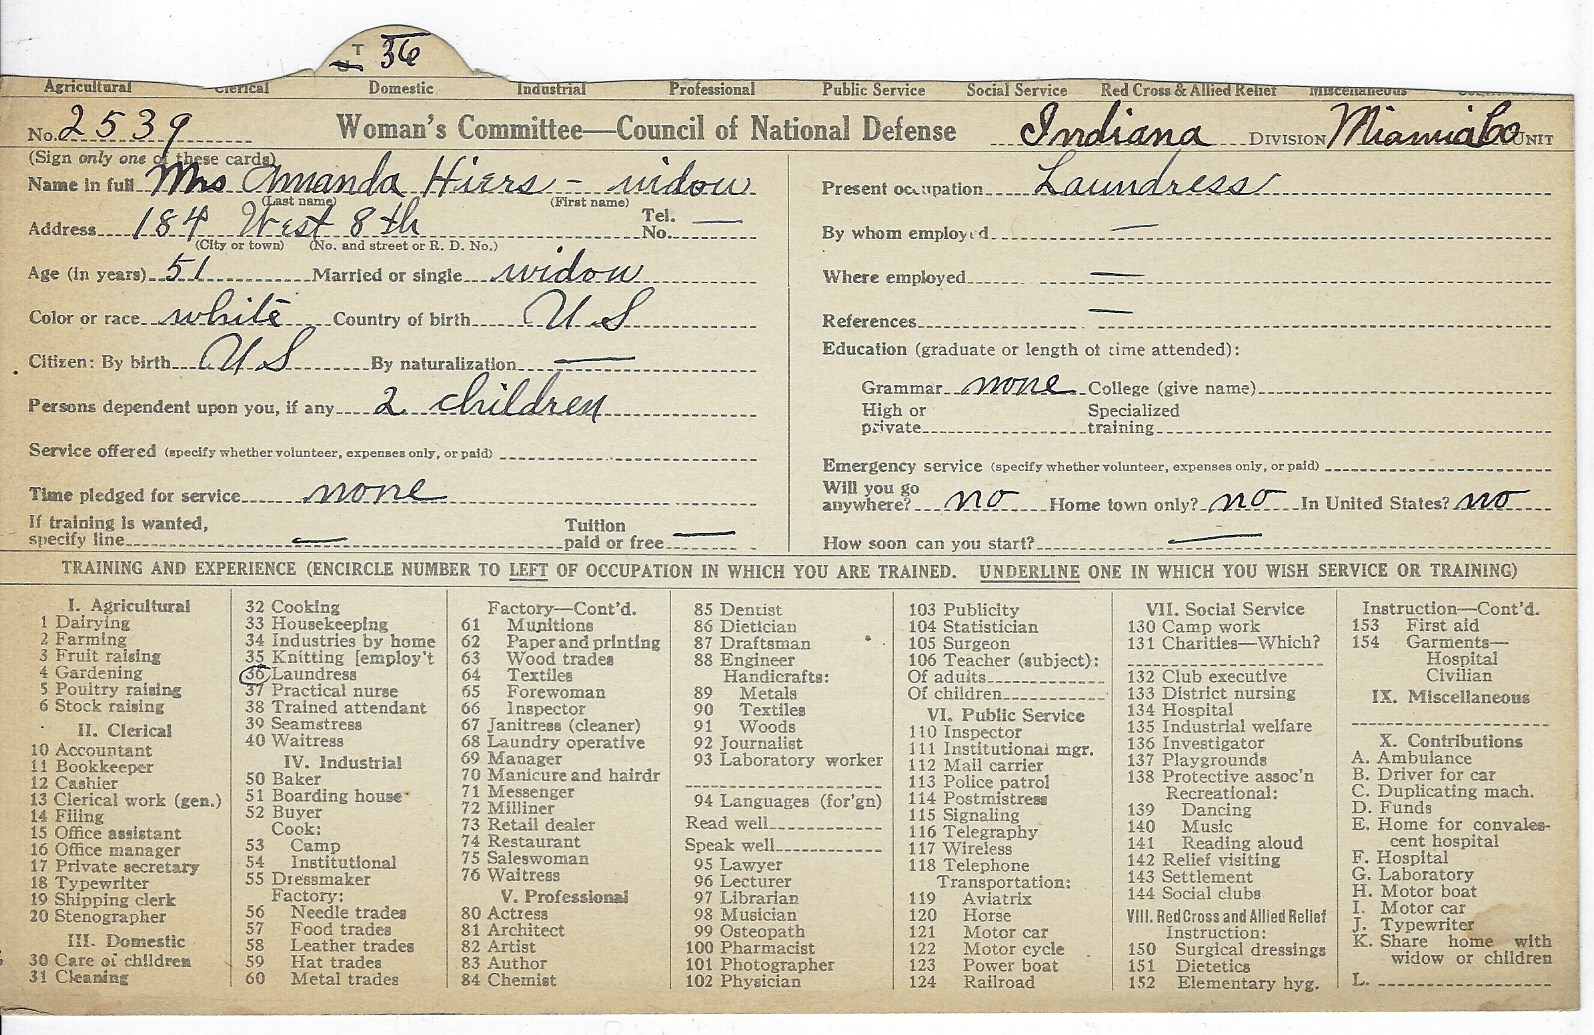 T 36
Agricultural Clerical Domestic Industrial Professional Public Service Social Service Red Cross & Allied Relief Miscellaneous
No. 2539 Woman's Committee—Council of National Defense Indiana DIVISION Miami Co UNIT
(Sign only one of these cards)
Name in full Mrs Amanda Hiers - widow
(Last name) (First name)
Address 184 West 8th Tel. No. —
(City or town) (No. and street or R. D. No.)
Age (in years) 51 Married or single widow
Color or race white Country of birth U S
Citizen: By birth U S By naturalization —
Persons dependent upon you, if any 2 children
Service offered (specify whether volunteer, expenses only, or paid)
Time pledged for service none
If training is wanted, specify line — Tuition paid or free —
Present occupation Laundress
By whom employed —
Where employed —
References —
Education (graduate or length of time attended):
Grammar none College (give name)
High or private Specialized training
Emergency service (specify whether volunteer, expenses only, or paid)
Will you go anywhere? no Home town only? no In United States? no
How soon can you start? —
TRAINING AND EXPERIENCE (ENCIRCLE NUMBER TO LEFT OF OCCUPATION IN WHICH YOU ARE TRAINED. UNDERLINE ONE IN WHICH YOU WISH SERVICE OR TRAINING)
I. Agricultural
1 Dairying
2 Farming
3 Fruit raising
4 Gardening
5 Poultry raising
6 Stock raising
II. Clerical
10 Accountant
11 Bookkeeper
12 Cashier
13 Clerical work (gen.)
14 Filing
15 Office assistant
16 Office manager
17 Private secretary
18 Typewriter
19 Shipping clerk
20 Stenographer
III. Domestic
30 Care of children
31 Cleaning
32 Cooking
33 Housekeeping
34 Industries by home
35 Knitting [employ't
36 Laundress
37 Practical nurse
38 Trained attendant
39 Seamstress
40 Waitress
IV. Industrial
50 Baker
51 Boarding house
52 Buyer
Cook:
53 Camp
54 Institutional
55 Dressmaker
Factory:
56 Needle trades
57 Food trades
58 Leather trades
59 Hat trades
60 Metal trades
Factory—Cont'd.
61 Munitions
62 Paper and printing
63 Wood trades
64 Textiles
65 Forewoman
66 Inspector
67 Janitress (cleaner)
68 Laundry operative
69 Manager
70 Manicure and hairdr
71 Messenger
72 Milliner
73 Retail dealer
74 Restaurant
75 Saleswoman
76 Waitress
V. Professional
80 Actress
81 Architect
82 Artist
83 Author
84 Chemist
85 Dentist
86 Dietician
87 Draftsman
88 Engineer
Handicrafts:
89 Metals
90 Textiles
91 Woods
92 Journalist
93 Laboratory worker
94 Languages (for'gn)
Read well
Speak well
95 Lawyer
96 Lecturer
97 Librarian
98 Musician
99 Osteopath
100 Pharmacist
101 Photographer
102 Physician
103 Publicity
104 Statistician
105 Surgeon
106 Teacher (subject):
Of adults
Of children
VI. Public Service
110 Inspector
111 Institutional mgr.
112 Mail carrier
113 Police patrol
114 Postmistress
115 Signaling
116 Telegraphy
117 Wireless
118 Telephone
Transportation:
119 Aviatrix
120 Horse
121 Motor car
122 Motor cycle
123 Power boat
124 Railroad
VII. Social Service
130 Camp work
131 Charities—Which?
132 Club executive
133 District nursing
134 Hospital
135 Industrial welfare
136 Investigator
137 Playgrounds
138 Protective assoc'n
Recreational:
139 Dancing
140 Music
141 Reading aloud
142 Relief visiting
143 Settlement
144 Social clubs
VIII. Red Cross and Allied Relief
Instruction:
150 Surgical dressings
151 Dietetics
152 Elementary hyg.
Instruction—Cont'd.
153 First aid
154 Garments—
Hospital
Civilian
IX. Miscellaneous
X. Contributions
A. Ambulance
B. Driver for car
C. Duplicating mach.
D. Funds
E. Home for convales-
cent hospital
F. Hospital
G. Laboratory
H. Motor boat
I. Motor car
J. Typewriter
K. Share home with
widow or children
L.